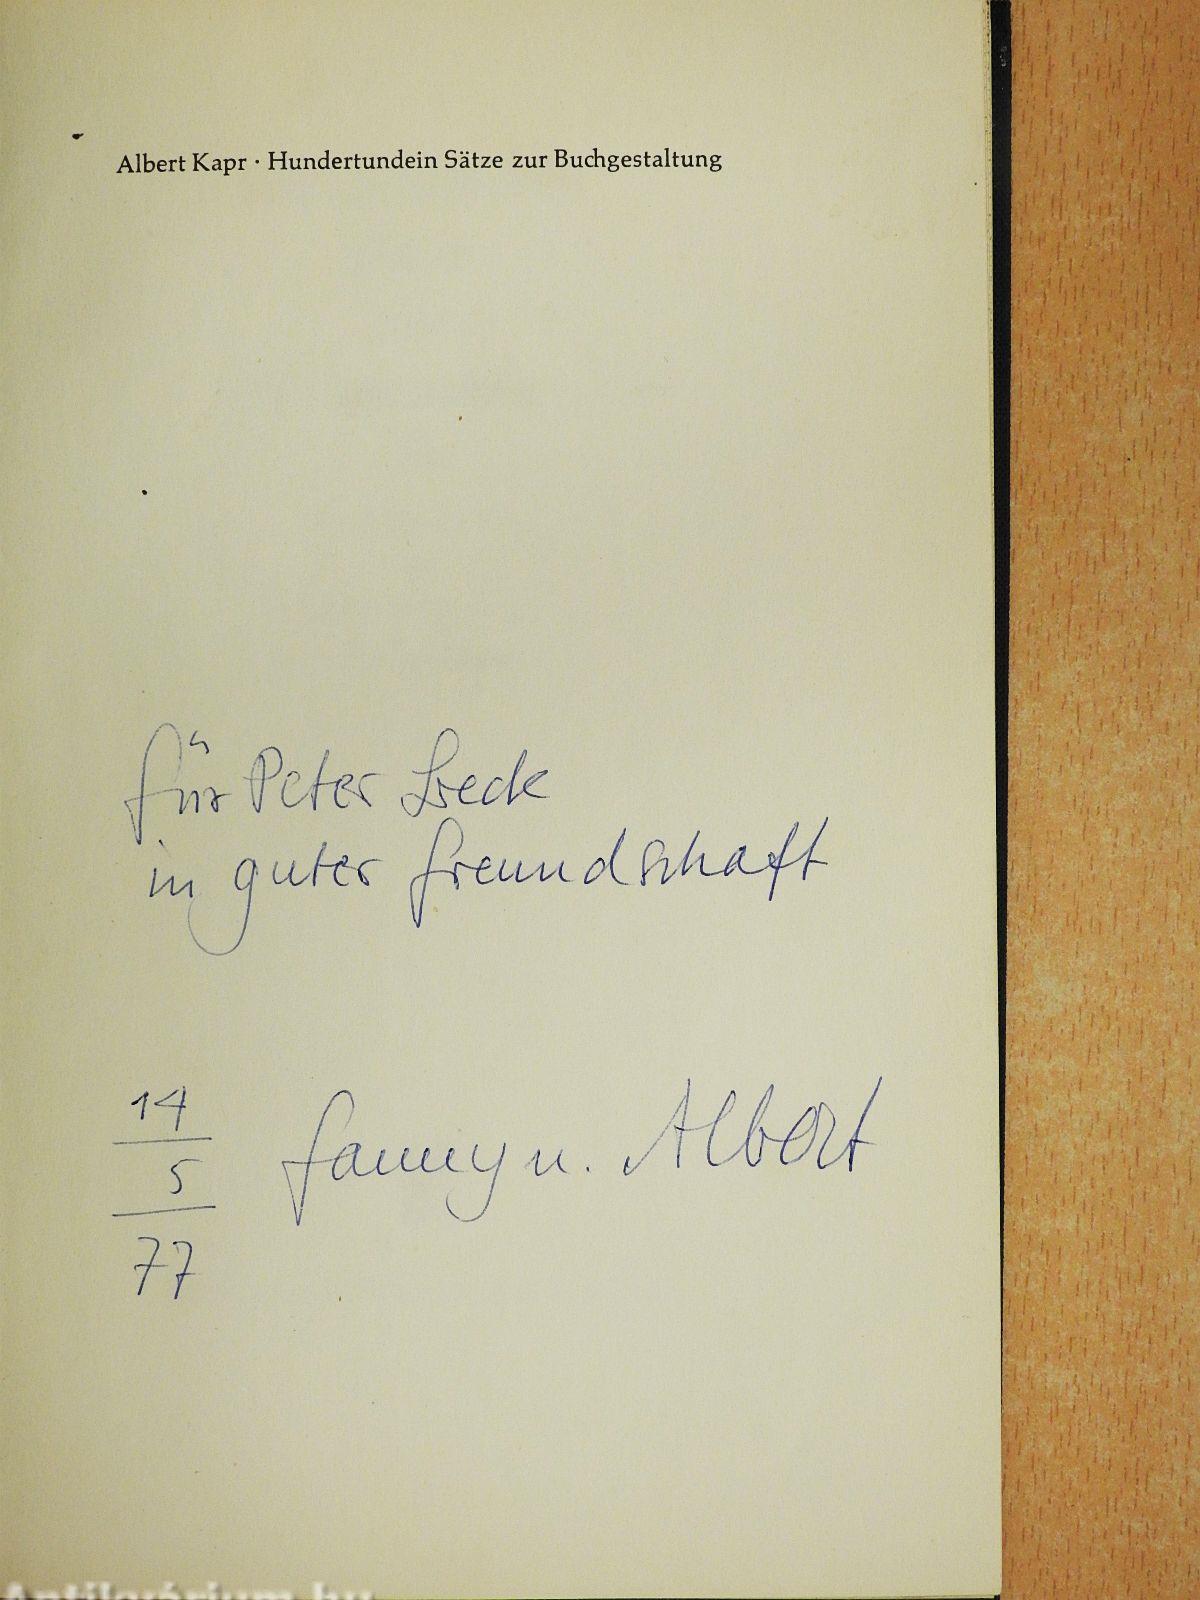 Albert Kapr · Hundertundein Sätze zur Buchgestaltung
für Peter
in guter Freundschaft
14
5
77
Fanny u. Albert
Antikvárium.hu